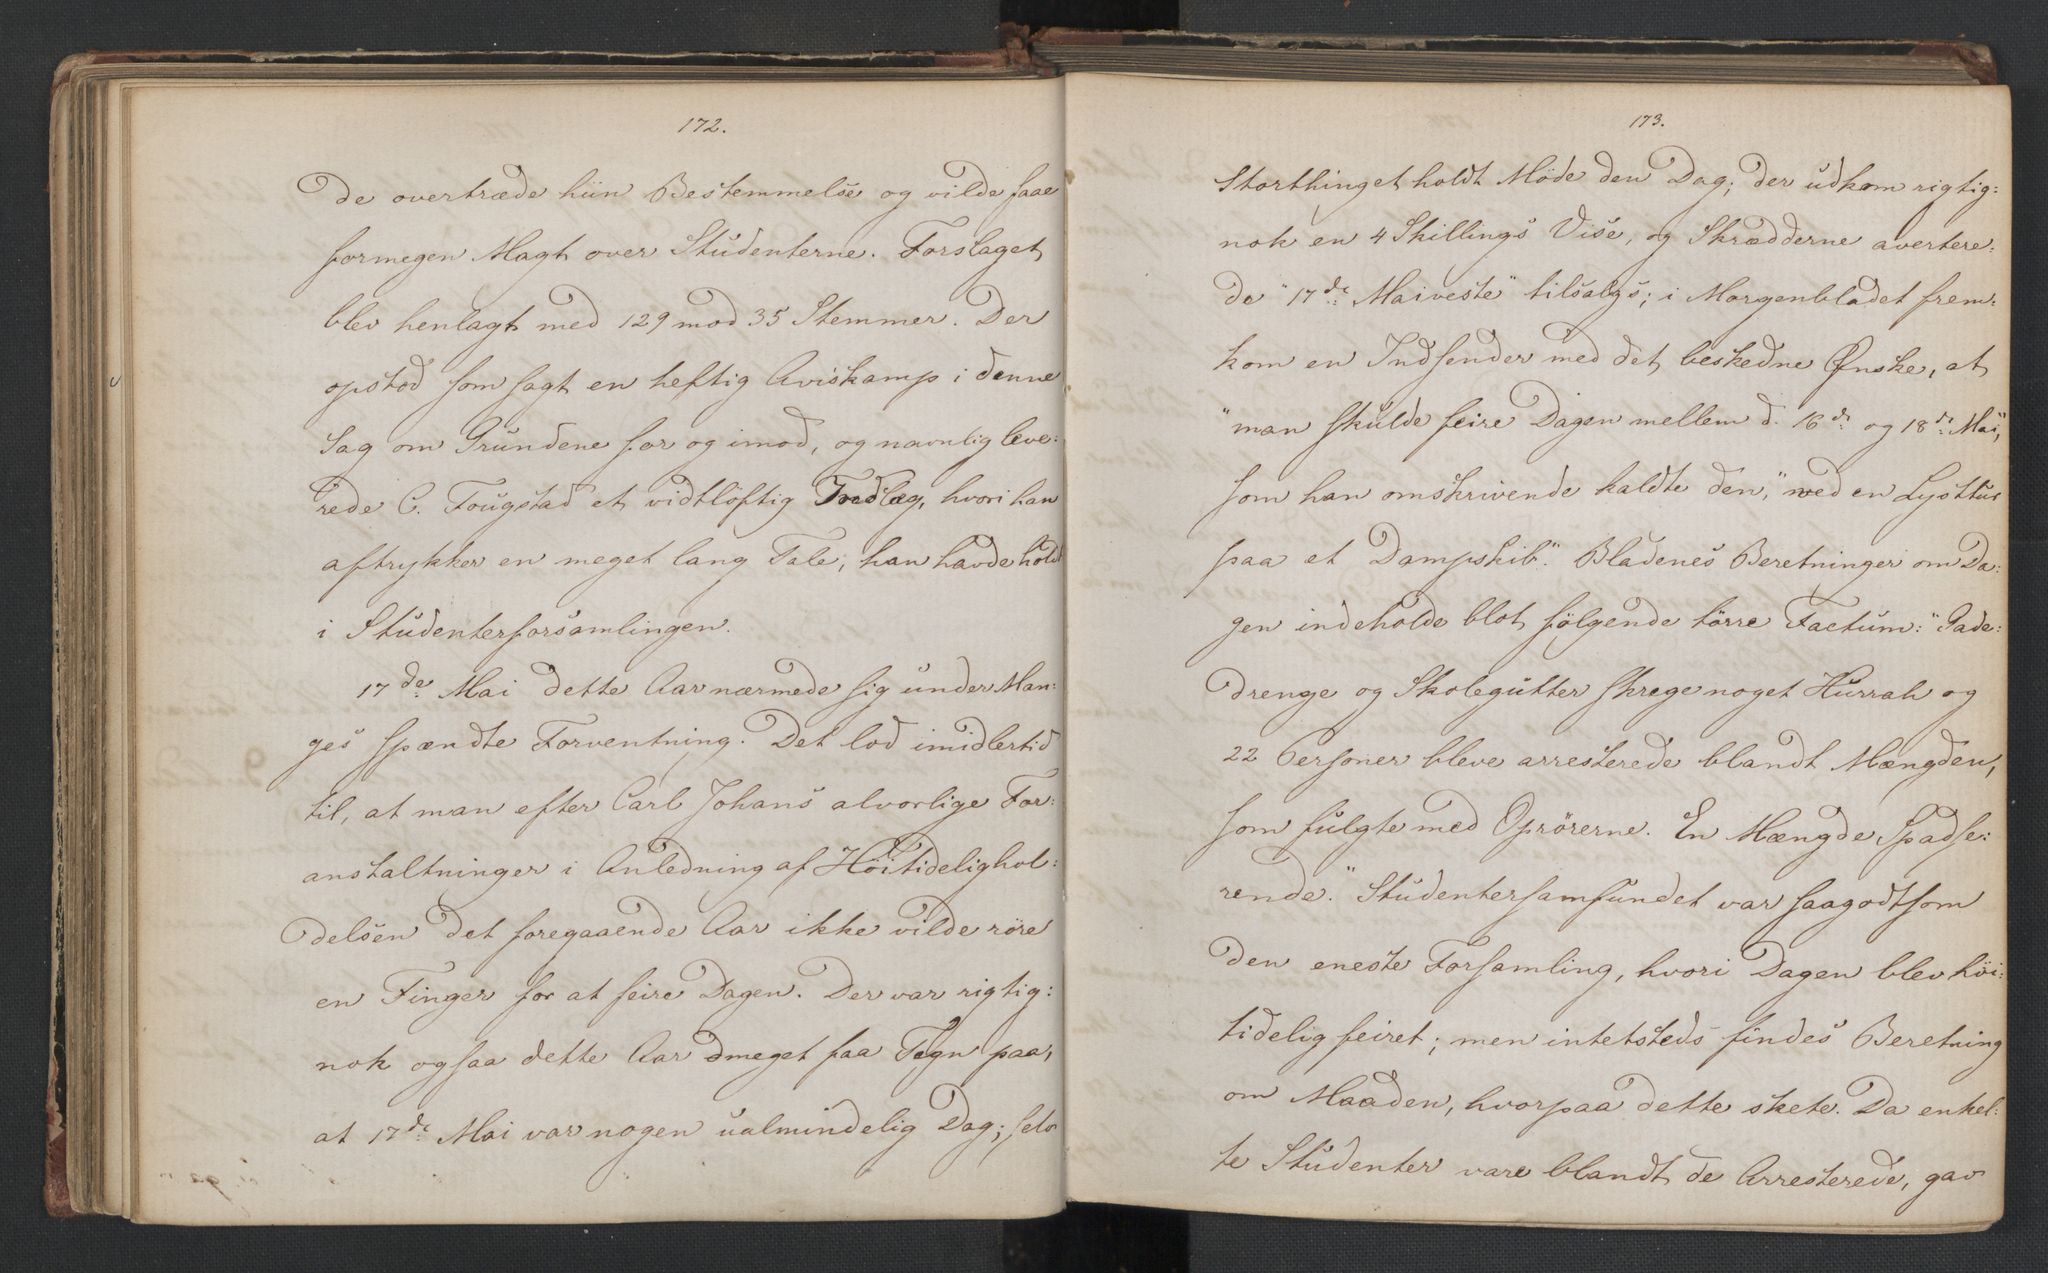 172.
de overtræde hiin Bestemmelse og vilde faae
formegen Magt over Studenterne. Forslaget
blev henlagt med 129 mod 35 Stemmer. Der
opstod som sagt en heftig Aviskamp i denne
Sag om Grundene for og imod, og navnlig leve:
rede C. Fougstad et vidtløftig Indlæg, hvori han
aftrykker en meget lang Tale, han havde holdt
i Studenterforsamlingen.
17de Mai dette Aar nærmede sig under Man:
ges spændte Forventning. Det lod imidlertid
til, at man efter Carl Johans alvorlige For:
anstaltninger i Anledning af Høitidelighol:
delsen det foregaaende Aar ikke vilde røre
en Finger for at feire Dagen. Der var rigtig:
nok ogsaa dette Aar meget faa Tegn paa,
at 17de Mai var nogen ualmindelig Dag; selv
173.
Storthinget holdt Møde den Dag; der udkom rigtig:
nok en 4 Skillings Vise, og Skrædderne avertere:
de "17de Maiveste" tilsalgs; i Morgenbladet frem:
kom en Indsender med det beskedne Ønske, at
"man skulde feire Dagen mellem d. 16de og 18de Mai",
som han omskrivende kaldte den, "med en Lysttur
paa et Dampskib". Bladenes Beretninger om Da:
gen indeholde blot følgende tørre Factum: "Gade:
drenge og Skolegutter skrege noget Hurrah og
22 Personer bleve arresterede blandt Mængden,
som fulgte med Oprørerne. En Mængde Spadse:
rende." Studentersamfundet var saagodtsom
den eneste Forsamling, hvori Dagen blev høi:
tidelig feiret; men intetsteds findes Beretning
om Maaden, hvorpaa dette skete. Da enkel:
te Studenter vare blandt de Arresterede, gav